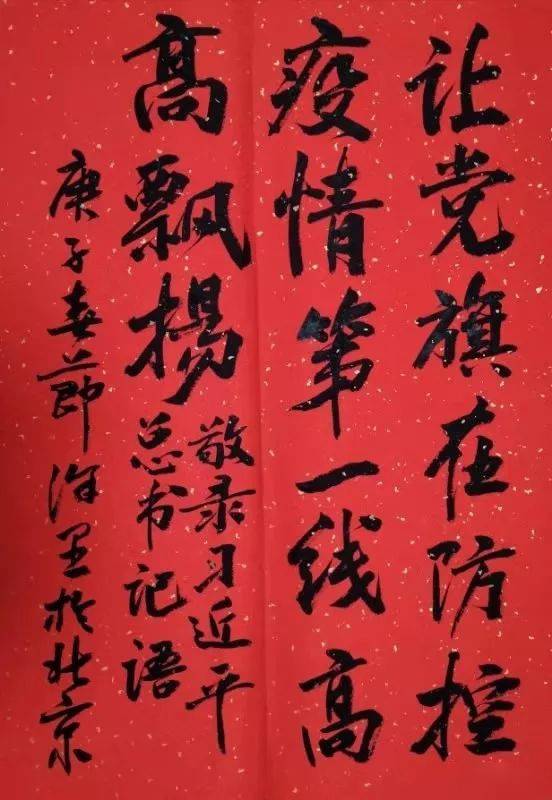 让党旗在防控
疫情第一线高
高飘扬
敬录习近平
总书记语
庚子春節 里於北京